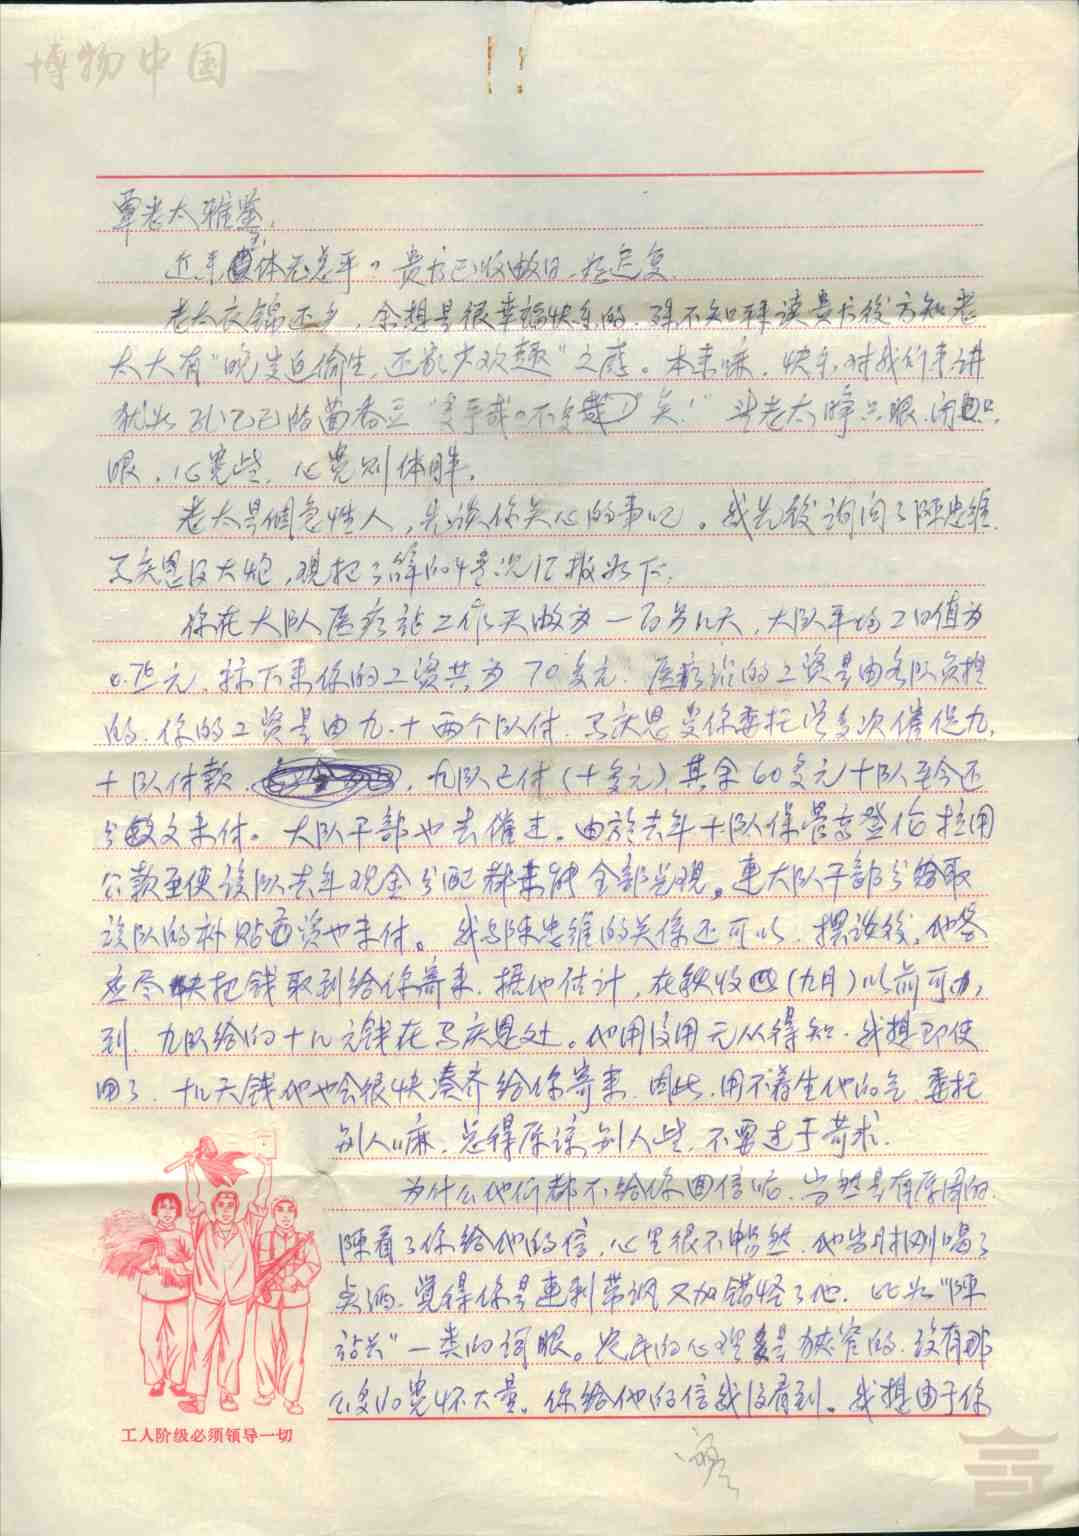 博物中国
覃老太雅鉴:
近来身体无恙乎?贵书已收数日,今迟复。
老太衣锦还乡,余想是很幸福快乐的,殊不知拜读贵书後方知老
太大有“晚岁迫偷生,还家少欢趣”之感。本来嘛,快乐对我们来讲
犹如孔乙己的茴香豆“多乎哉?不多哉”矣!望老太睁只眼,闭只
眼,心宽些,心宽则体胖。
老太是個急性人,先谈你关心的事吧。我先後询问了陈忠维、
马庆恩及大炮,现把了解的情况汇报如下。
你在大队医疗站工作天数为一百另几天,大队平均工日值为
0.75元,称下来你的工资共为70多元。医疗站的工资是由各队负担
的,你的工资是由九、十两个队付,马庆恩受你委托曾多次催促九、
十队付款,九队已付(十多元),其余60多元十队至今还
分文未付。大队干部也去催过。由於去年十队保管高登伦拉用
公款至使该队去年现金分配都未能全部兑现。连大队干部分给取
该队的补贴工资也未付。我与陈忠维的关係还可以,摆谈後,他答
应尽快把钱取到给你寄来,据他估计,在秋收(九月)以前可办
到,九队给的十几元钱在马庆恩处。他用没用无从得知,我想即使
用了,十几元钱他也会很快凑齐给你寄来,因此,用不着生他的气,委托
别人嘛,总得原谅别人些,不要过于苛求。
为什么他们都不给你回信呢,当然是有原因的。
陈看了你给他的信,心里很不安然,他当时刚喝了
点酒,觉得你是连刺带讽又加错怪了他,比如“陈
站长”一类的词眼。农民的心理是狭窄的,没有那
么多的宽怀大量。你给他的信我没看到。我想由于你
工人阶级必须领导一切